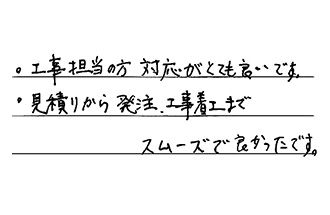 。工事担当の方 対応がとても良いです。
・見積りから発注、工事着工まで
スムーズで良かったです。